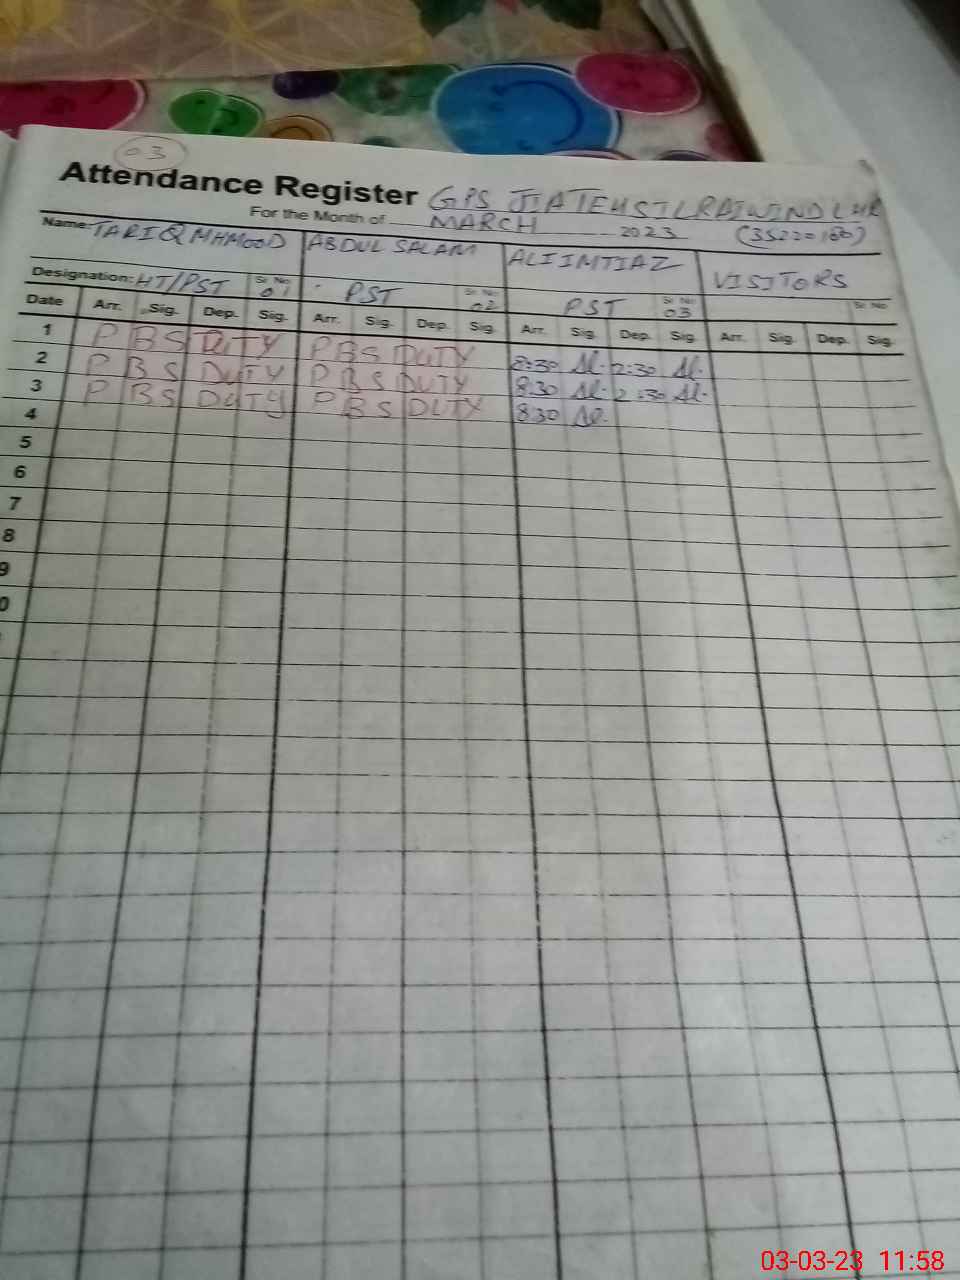 03
Attendance Register GPS JIA TEHSIL RAIWIND LHR
For the Month of MARCH 2023 (35220160)
Name: TARIQ MHMOOD ABDUL SALAM ALI IMTIAZ VISITORS
Designation: HT/PST Sr No 01 PST Sr No 02 PST Sr No 03 Sr No
Date Arr. Sig. Dep. Sig. Arr. Sig. Dep. Sig. Arr. Sig. Dep. Sig. Arr. Sig. Dep. Sig.
1 P B S DUTY P B S DUTY 8:30 2:30
2 P B S DUTY P B S DUTY 8:30 2:30
3 P B S DUTY P B S DUTY 8:30
4
5
6
7
8
9
0
03-03-23 11:58